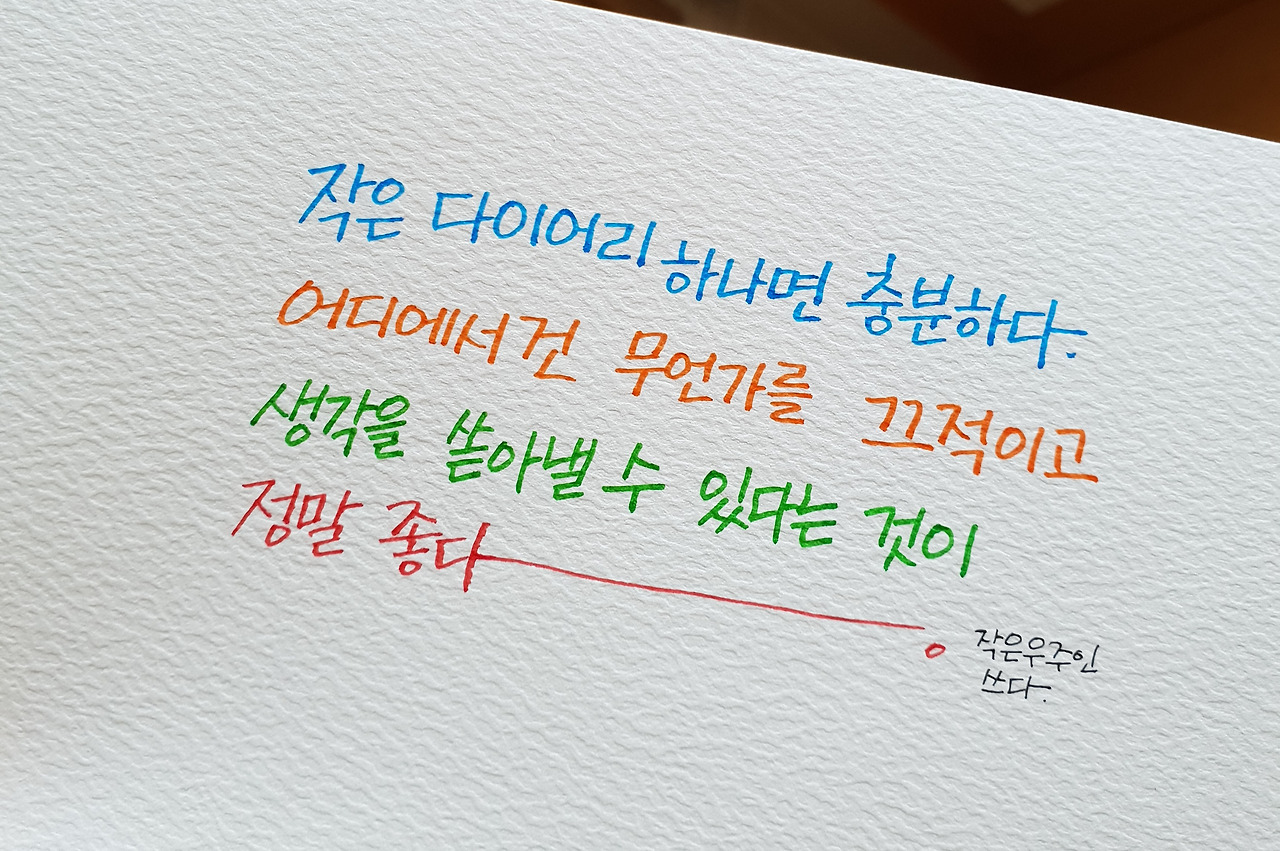 작은 다이어리 하나면 충분하다.
어디에서건 무언가를 끄적이고
생각을 쏟아낼 수 있다는 것이
정말 좋다
작은우주인
쓰다.